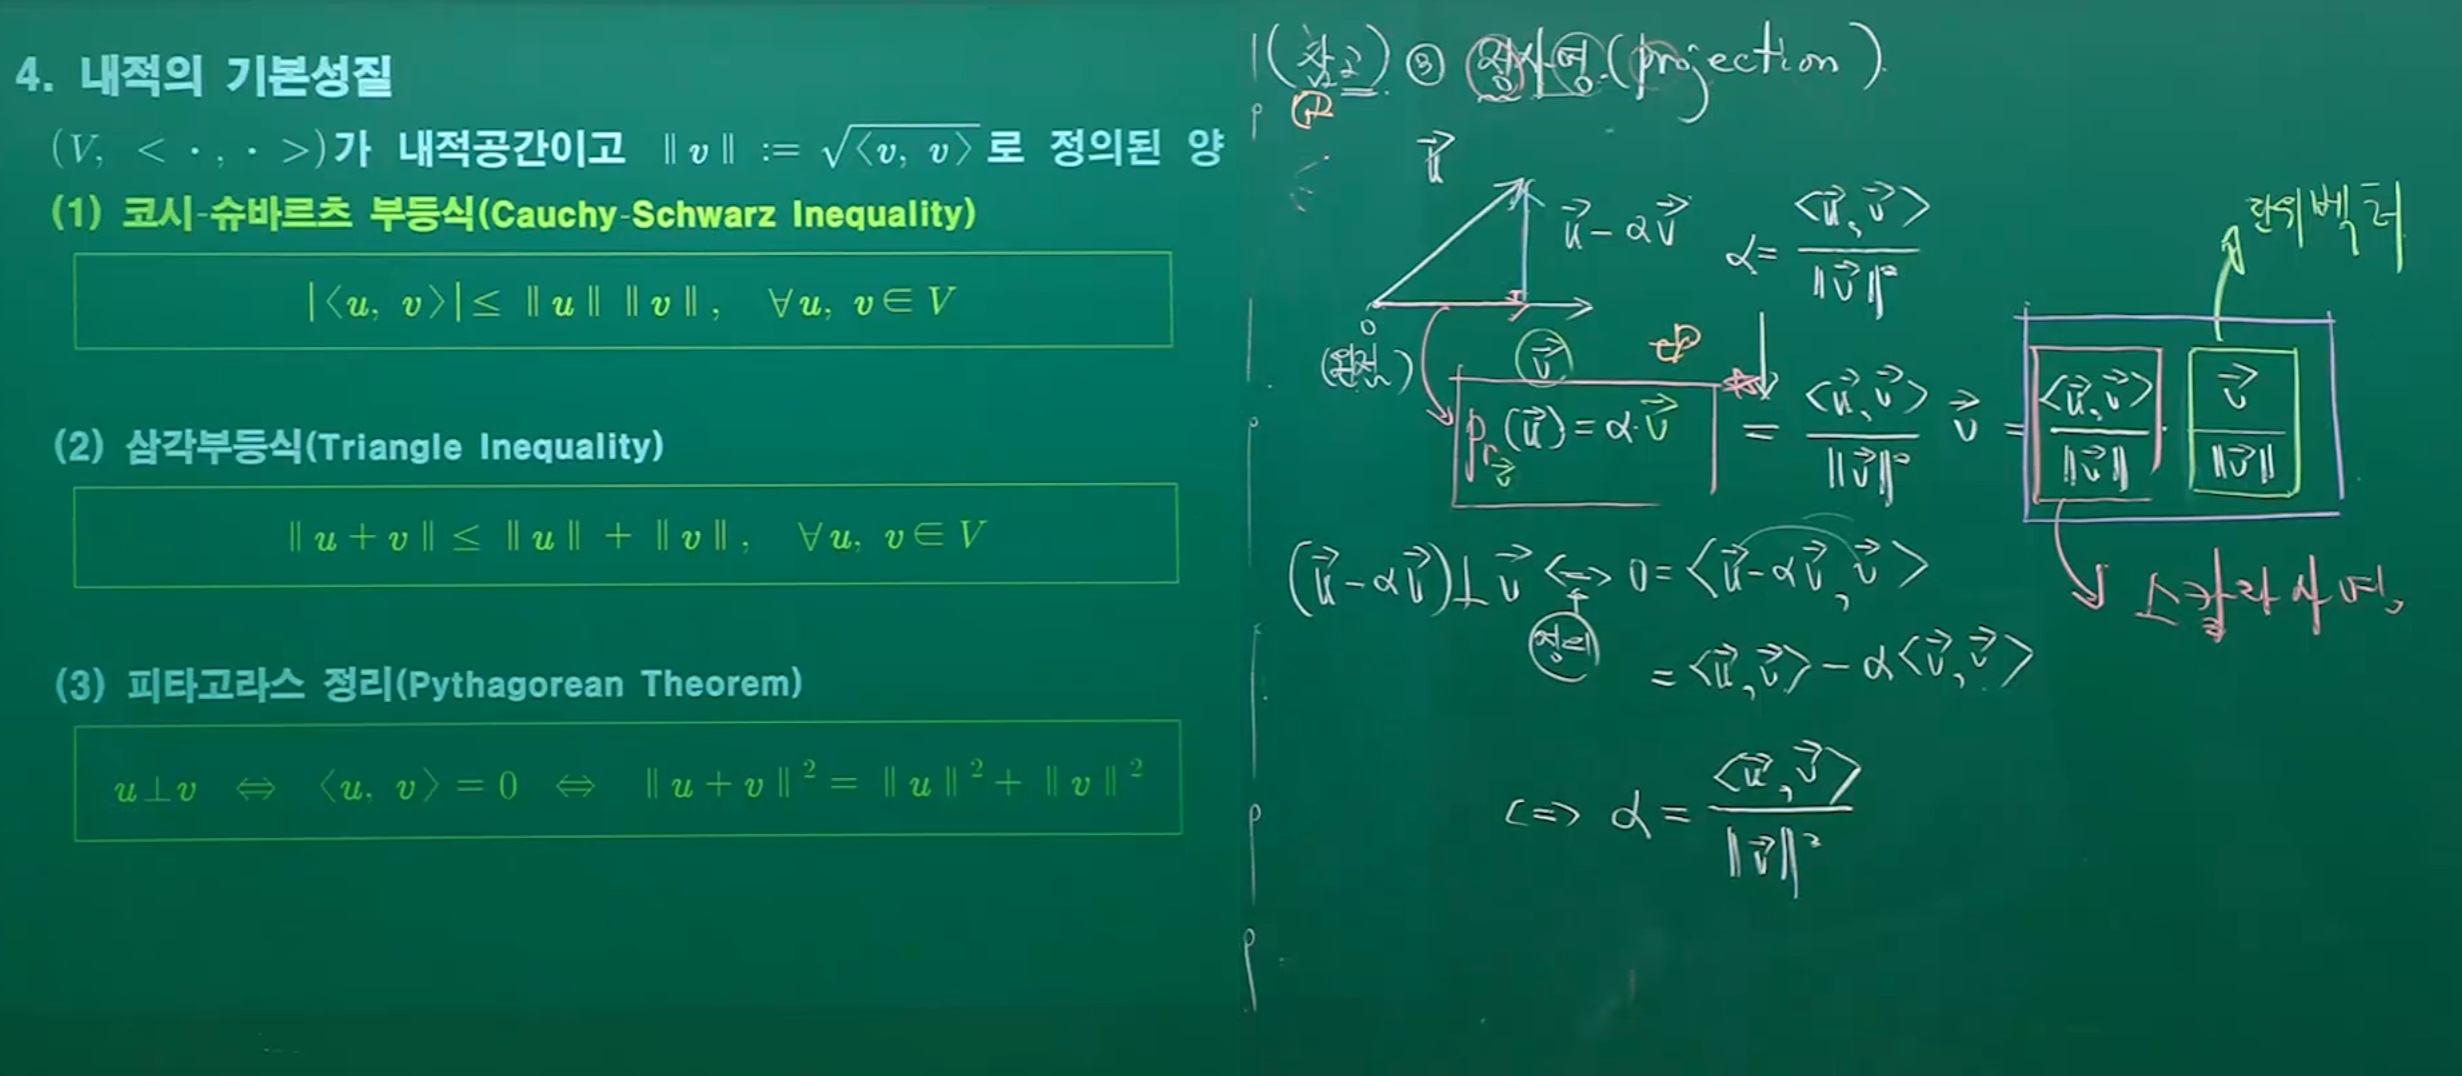 4. 내적의 기본성질
(V, < ·, · >)가 내적공간이고 ‖v‖ := √⟨v, v⟩ 로 정의된 양
(1) 코시-슈바르츠 부등식(Cauchy-Schwarz Inequality)
|⟨u, v⟩| ≤ ‖u‖ ‖v‖, ∀u, v∈V
(2) 삼각부등식(Triangle Inequality)
‖u+v‖ ≤ ‖u‖ + ‖v‖, ∀u, v∈V
(3) 피타고라스 정리(Pythagorean Theorem)
u⊥v ⇔ ⟨u, v⟩=0 ⇔ ‖u+v‖²=‖u‖²+‖v‖²
(참고) ③ 정사영(projection)
u⃗
u⃗-αv⃗
α= ⟨u⃗,v⃗⟩/‖v⃗‖²
단위벡터
0
(원점)
v⃗
pr_v⃗(u⃗)=α·v⃗ = ⟨u⃗,v⃗⟩/‖v⃗‖² v⃗ = ⟨u⃗,v⃗⟩/‖v⃗‖ · v⃗/‖v⃗‖
(u⃗-αv⃗)⊥v⃗ ⟺ 0=⟨u⃗-αv⃗,v⃗⟩
정리
=⟨u⃗,v⃗⟩-α⟨v⃗,v⃗⟩
⟺ α= ⟨u⃗,v⃗⟩/‖v⃗‖²